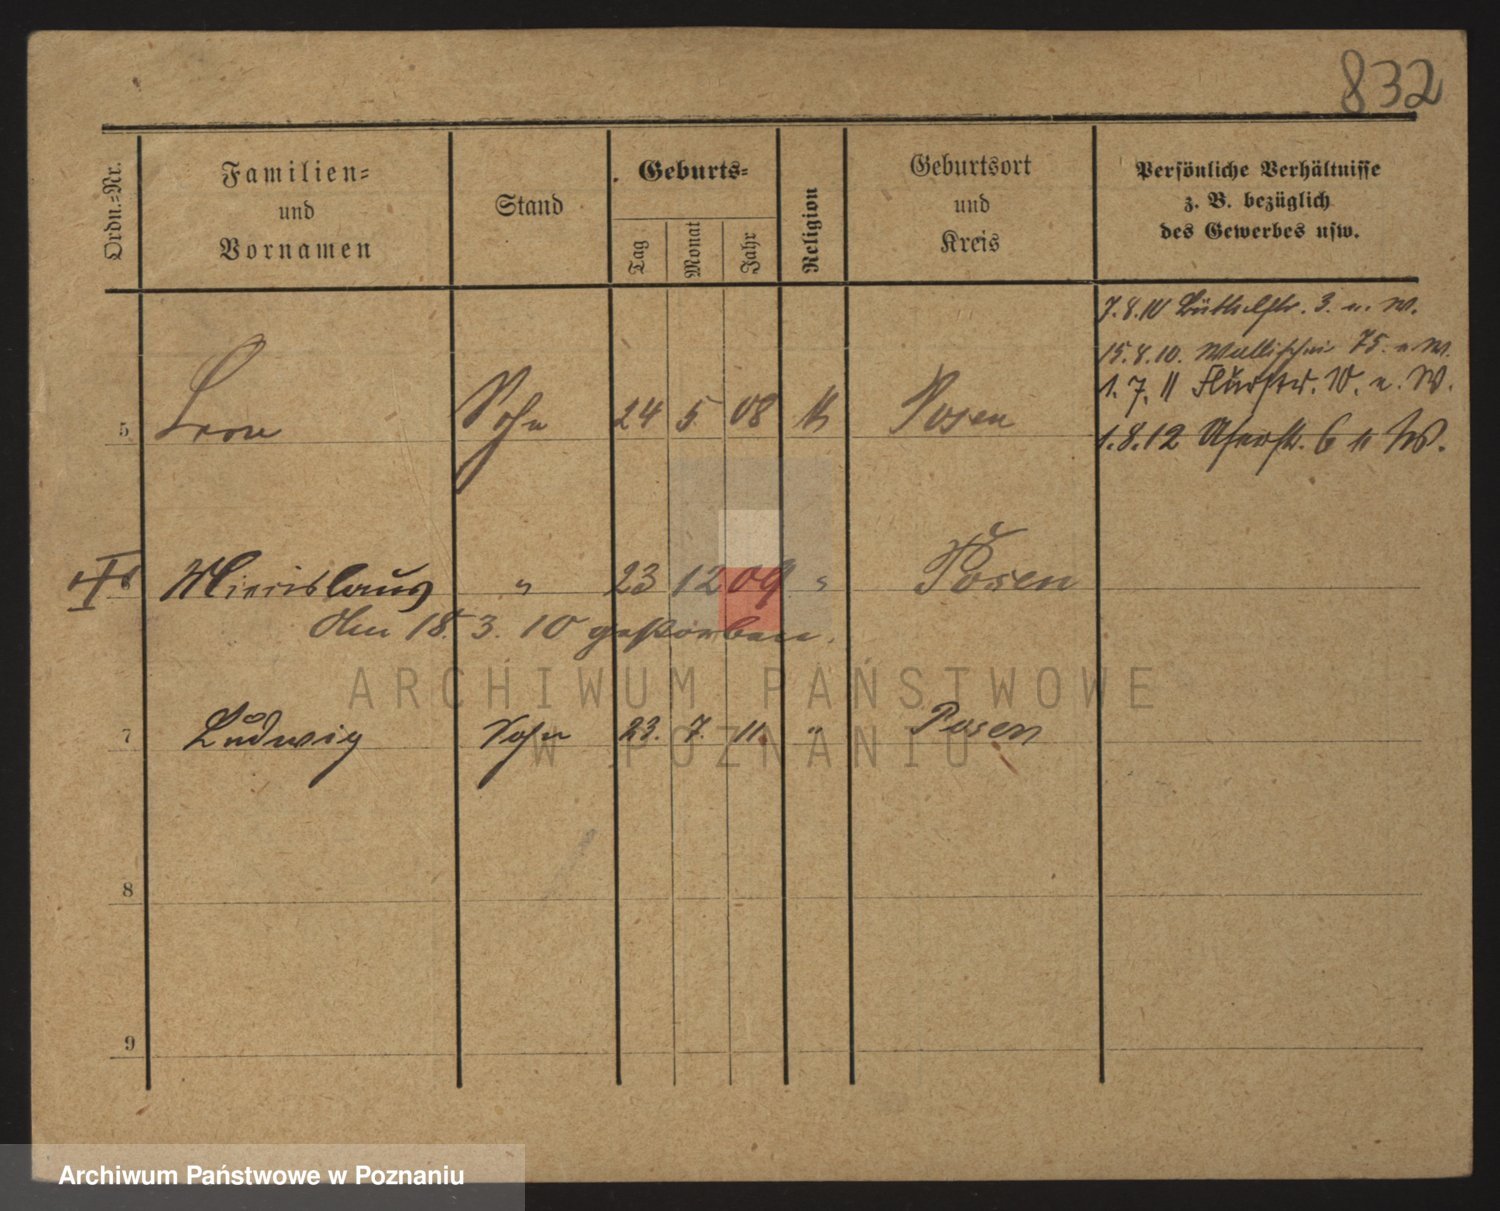 832
Ordn.-Nr.
Familien-
und
Vornamen
Stand
Geburts-
Tag
Monat
Jahr
Religion
Geburtsort
und
Kreis
Persönliche Verhältnisse
z. B. bezüglich
des Gewerbes usw.
7.8.10 3. u. W.
15.8.10. Wallischei 75. u. W.
1. 7. 11 Flurstr. 10. u. W.
1.8.12 6 u W.
5 Leon Sohn 24 5 08 K Posen
6 " 23 12 09 " Posen
Am 18. 3. 10 gestorben.
7 Ludwig Sohn 23. 7. 11. " Posen
8
9
ARCHIWUM PAŃSTWOWE
W POZNANIU
Archiwum Państwowe w Poznaniu